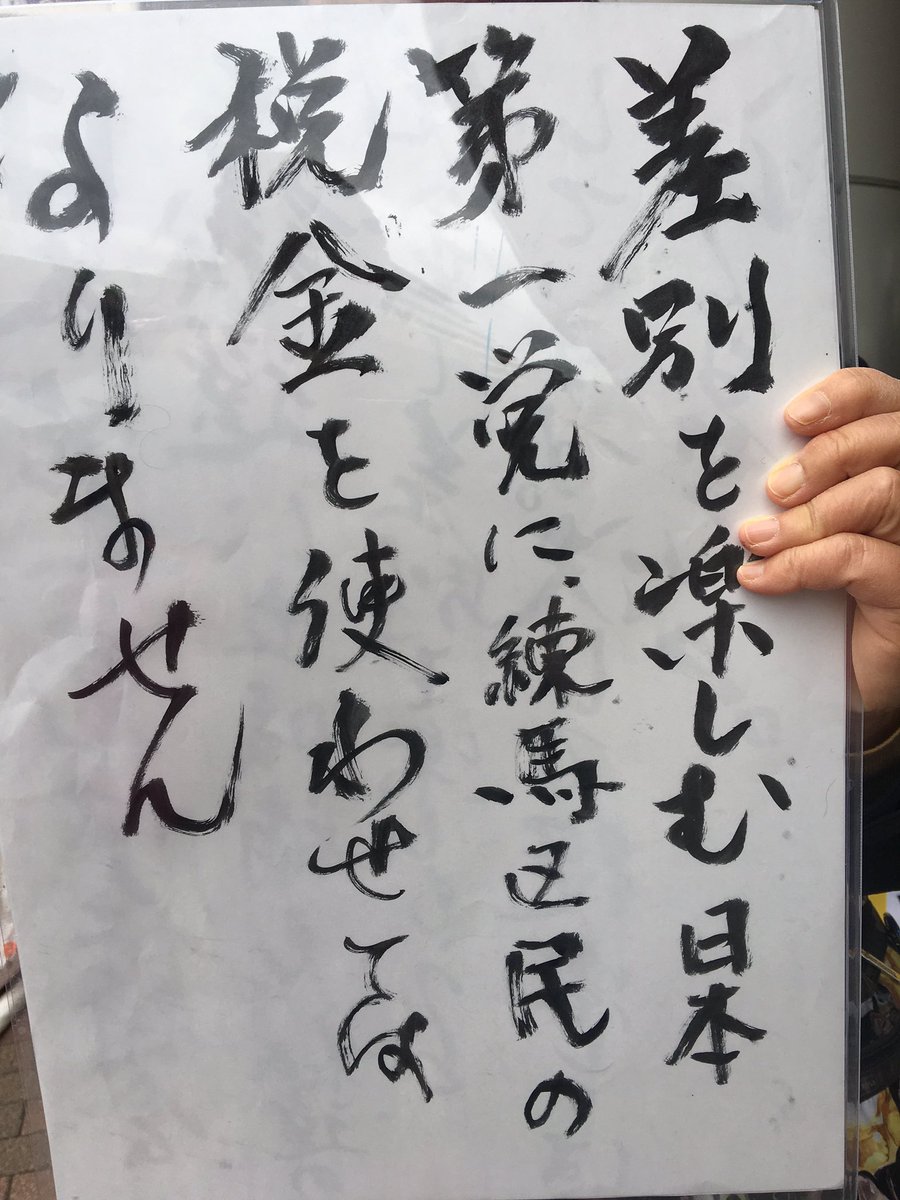 差別を楽しむ日本
第一党に、練馬区民の
税金を使わせては
なりません